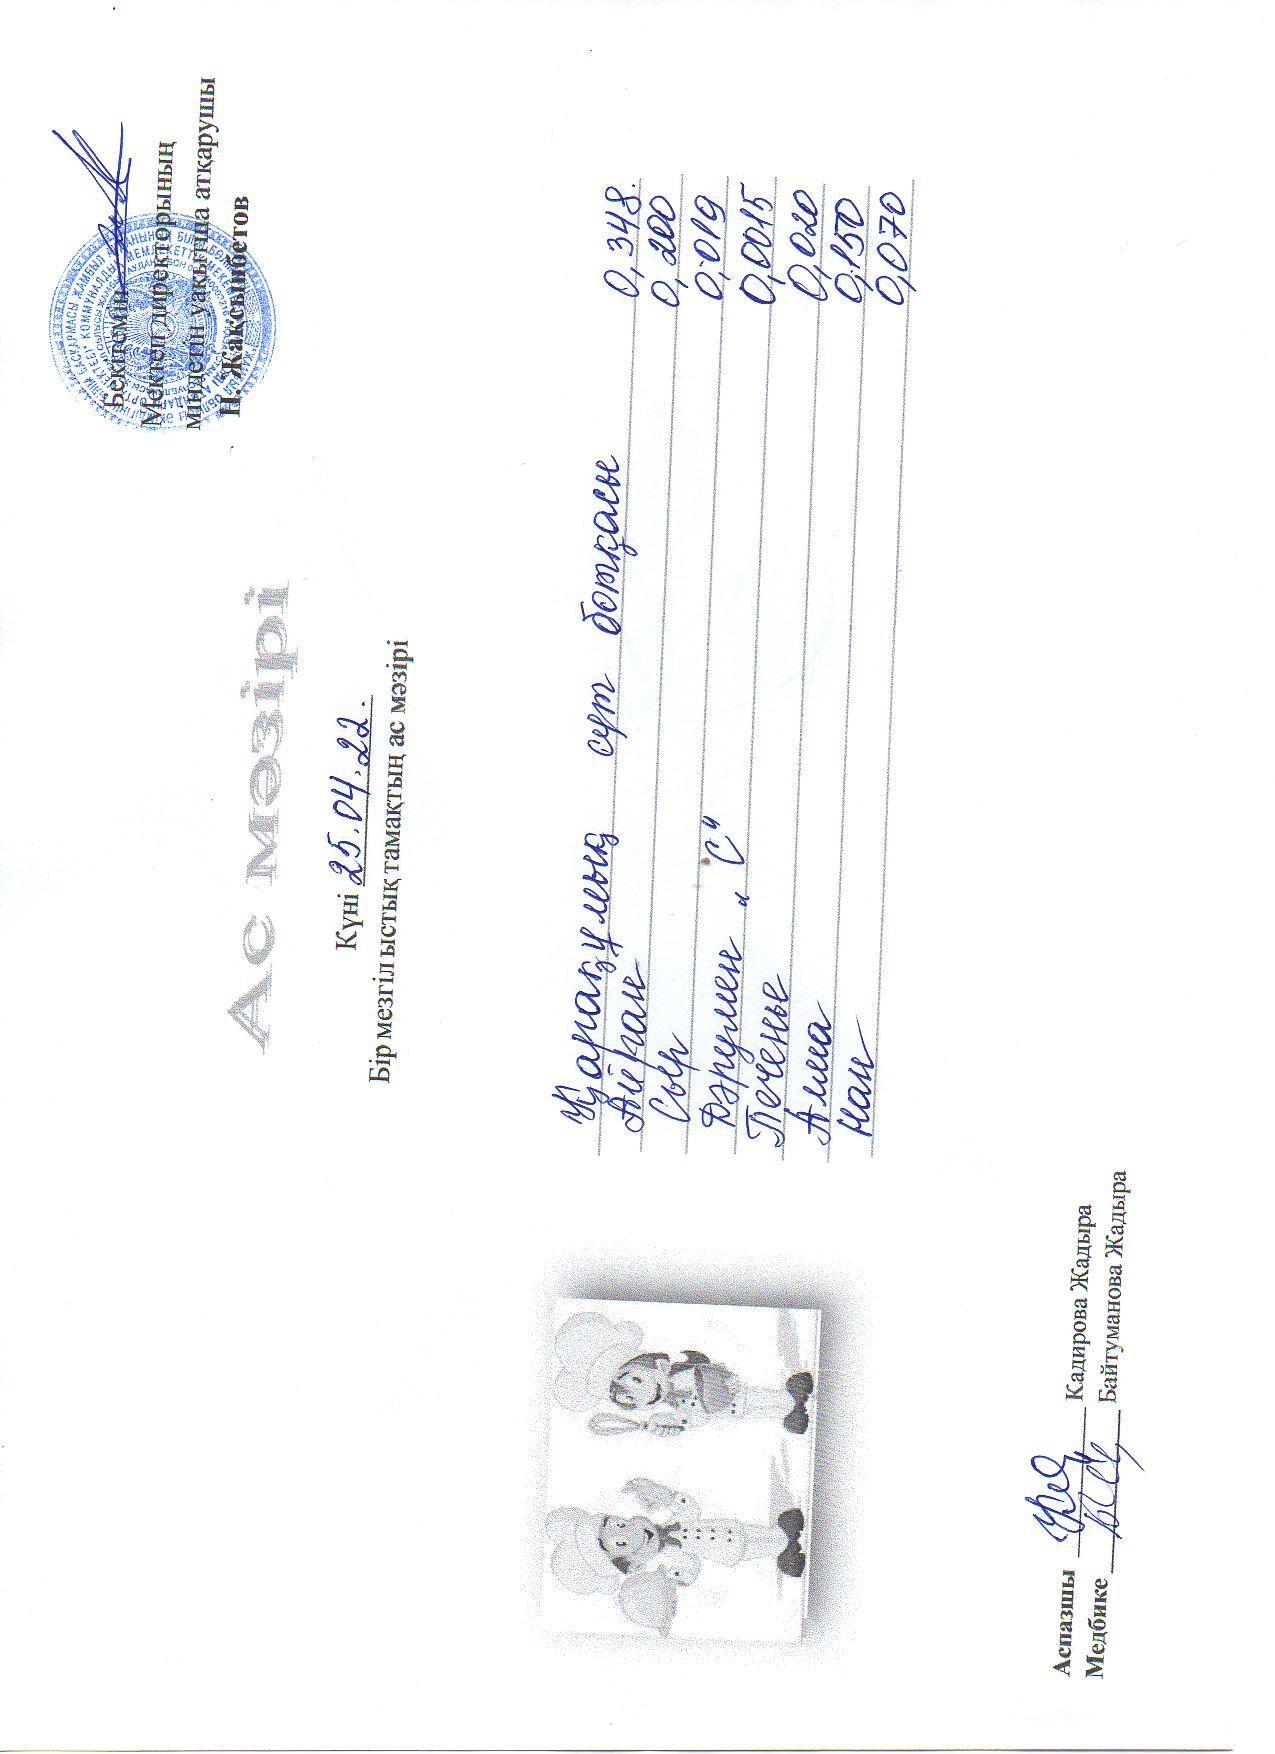 Бекітемін
Мектеп директорының
міндетін уақытша атқарушы
Н. Жаксыбетов
Ас мәзірі
Күні 25.04.22.
Бір мезгіл ыстық тамақтың ас мәзірі
Қарақұмық сүт ботқасы 0,348.
Айран 0,200
Сыр 0,019
Дәрумен "С" 0,0015
Печенье 0,020
Алма 0,150
Нан 0,070
Аспазшы Кадирова Жадыра
Медбике Байтуманова Жадыра